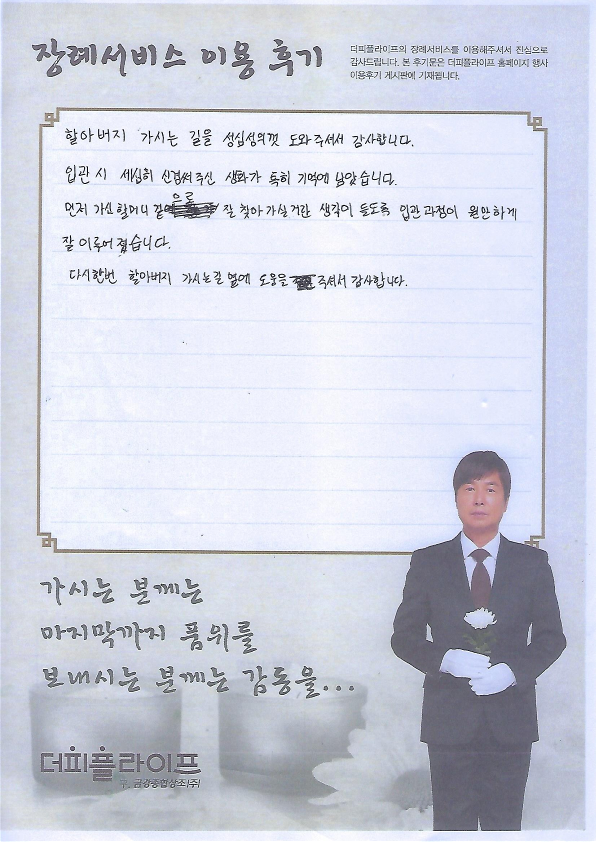 장례서비스 이용 후기
더피플라이프의 장례서비스를 이용해주셔서 진심으로
감사드립니다. 본 후기문은 더피플라이프 홈페이지 행사
이용후기 게시판에 기재됩니다.
할아버지 가시는 길을 성심성의껏 도와주셔서 감사합니다.
입관 시 세심히 신경써주신 생화가 특히 기억에 남았습니다.
먼저 가신 할머니 곁으로 잘 찾아가실거란 생각이 들도록 입관과정이 원만하게
잘 이루어졌습니다.
다시한번 할아버지 가시는길 옆에 도움을 주셔서 감사합니다.
가시는 분께는
마지막까지 품위를
보내시는 분께는 감동을...
더피플라이프
구. 금강종합상조(주)